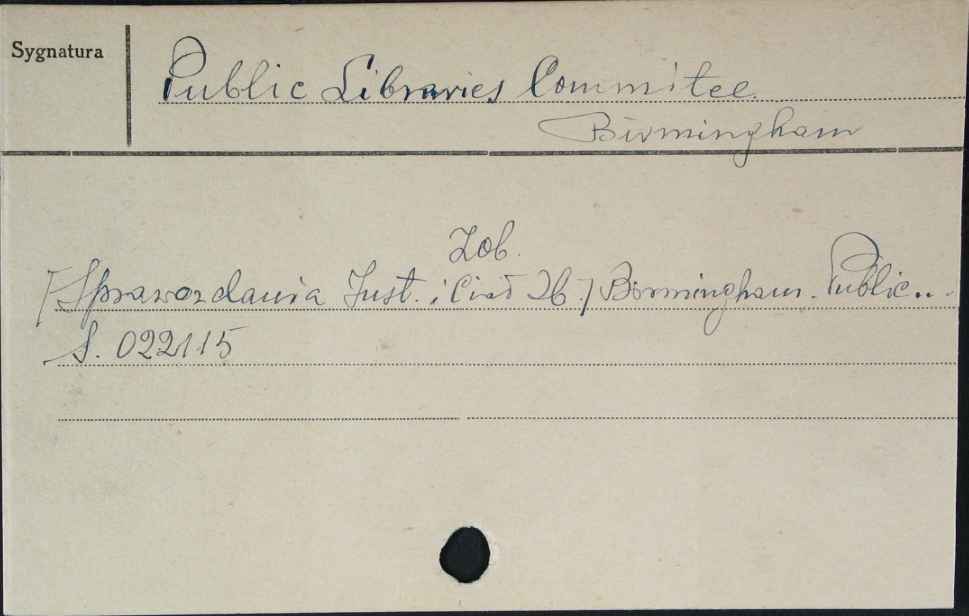 Sygnatura
Public Libraries Commitee.
Birmingham
Zob.
[Sprawozdania Inst. i Ciał Zb.] Birmingham. Public...
S. 022115